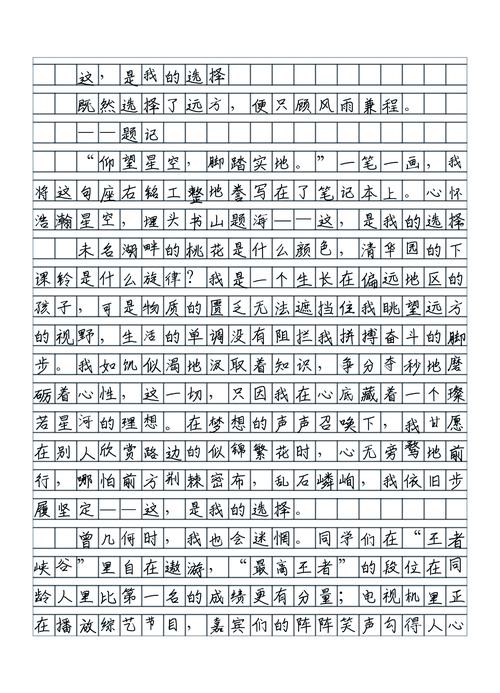 这，是我的选择
既然选择了远方，便只顾风雨兼程。
——题记
“仰望星空，脚踏实地。”一笔一画，我
将这句座右铭工整地誊写在了笔记本上。心怀
浩瀚星空，埋头书山题海——这，是我的选择
未名湖畔的桃花是什么颜色，清华园的下
课铃是什么旋律？我是一个生长在偏远地区的
孩子，可是物质的匮乏无法遮挡住我眺望远方
的视野，生活的单调没有阻拦我拼搏奋斗的脚
步。我如饥似渴地汲取着知识，争分夺秒地磨
砺着心性，这一切，只因我在心底藏着一个璨
若星河的理想。在梦想的声声召唤下，我甘愿
在别人欣赏路边的似锦繁花时，心无旁骛地前
行，哪怕前方荆棘密布，乱石嶙峋，我依旧步
履坚定——这，是我的选择。
曾几何时，我也会迷惘。同学们在“王者
峡谷”里自在遨游，“最高王者”的段位在同
龄人里比第一名的成绩更有分量；电视机里正
在播放综艺节目，嘉宾们的阵阵笑声勾得人心